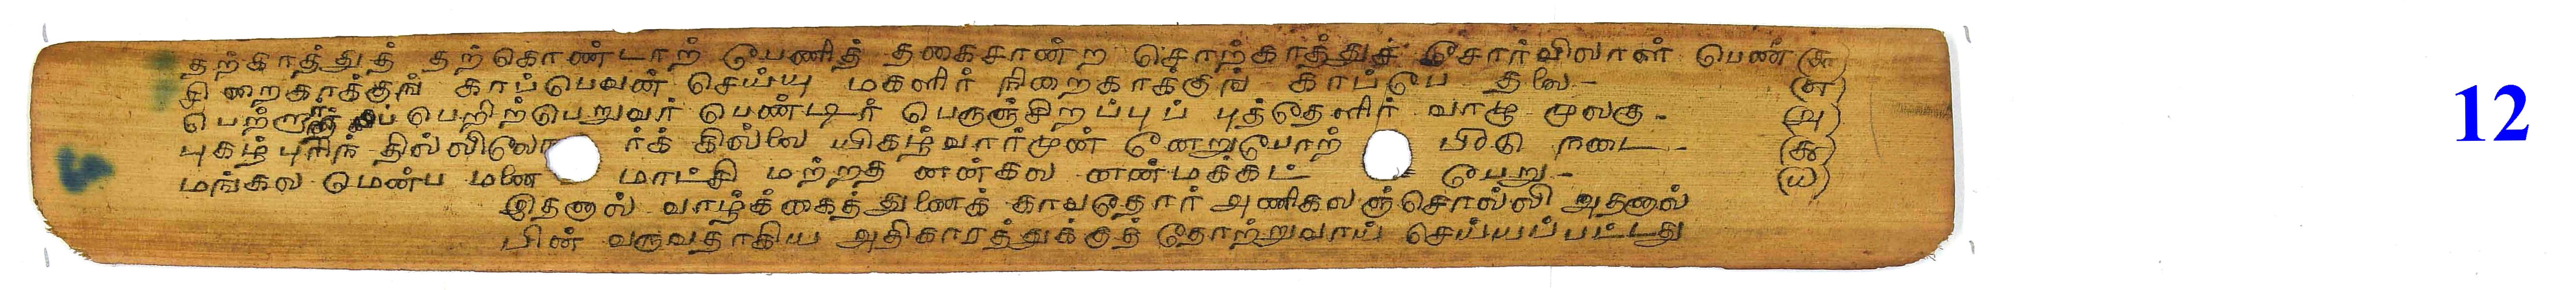 தற்காத்துத் தற்கொண்டாற் பேணித் தகைசான்ற சொற்காத்துச் சோர்விலாள் பெண் (௬)
சிறைகாக்குங் காப்பெவன் செய்யு மகளிர் நிறைகாக்குங் காப்பே தலை- (௭)
பெற்றாற் பெறிற்பெறுவர் பெண்டிர் பெருஞ்சிறப்புப் புத்தேளிர் வாழு முலகு- (௮)
புகழ்புரிந் தில்லிலோர்க் கில்லை யிகழ்வார்முன் னேறுபோற் பீடு நடை- (௯)
மங்கல மென்ப மனை மாட்சி மற்றத னன்கல னன்மக்கட் பேறு- (௰)
இதனால் வாழ்க்கைத்துணைக் காவதோர் அணிகலஞ்சொல்லி அதனால்
பின் வருவதாகிய அதிகாரத்துக்குத் தோற்றுவாய் செய்யப்பட்டது
12